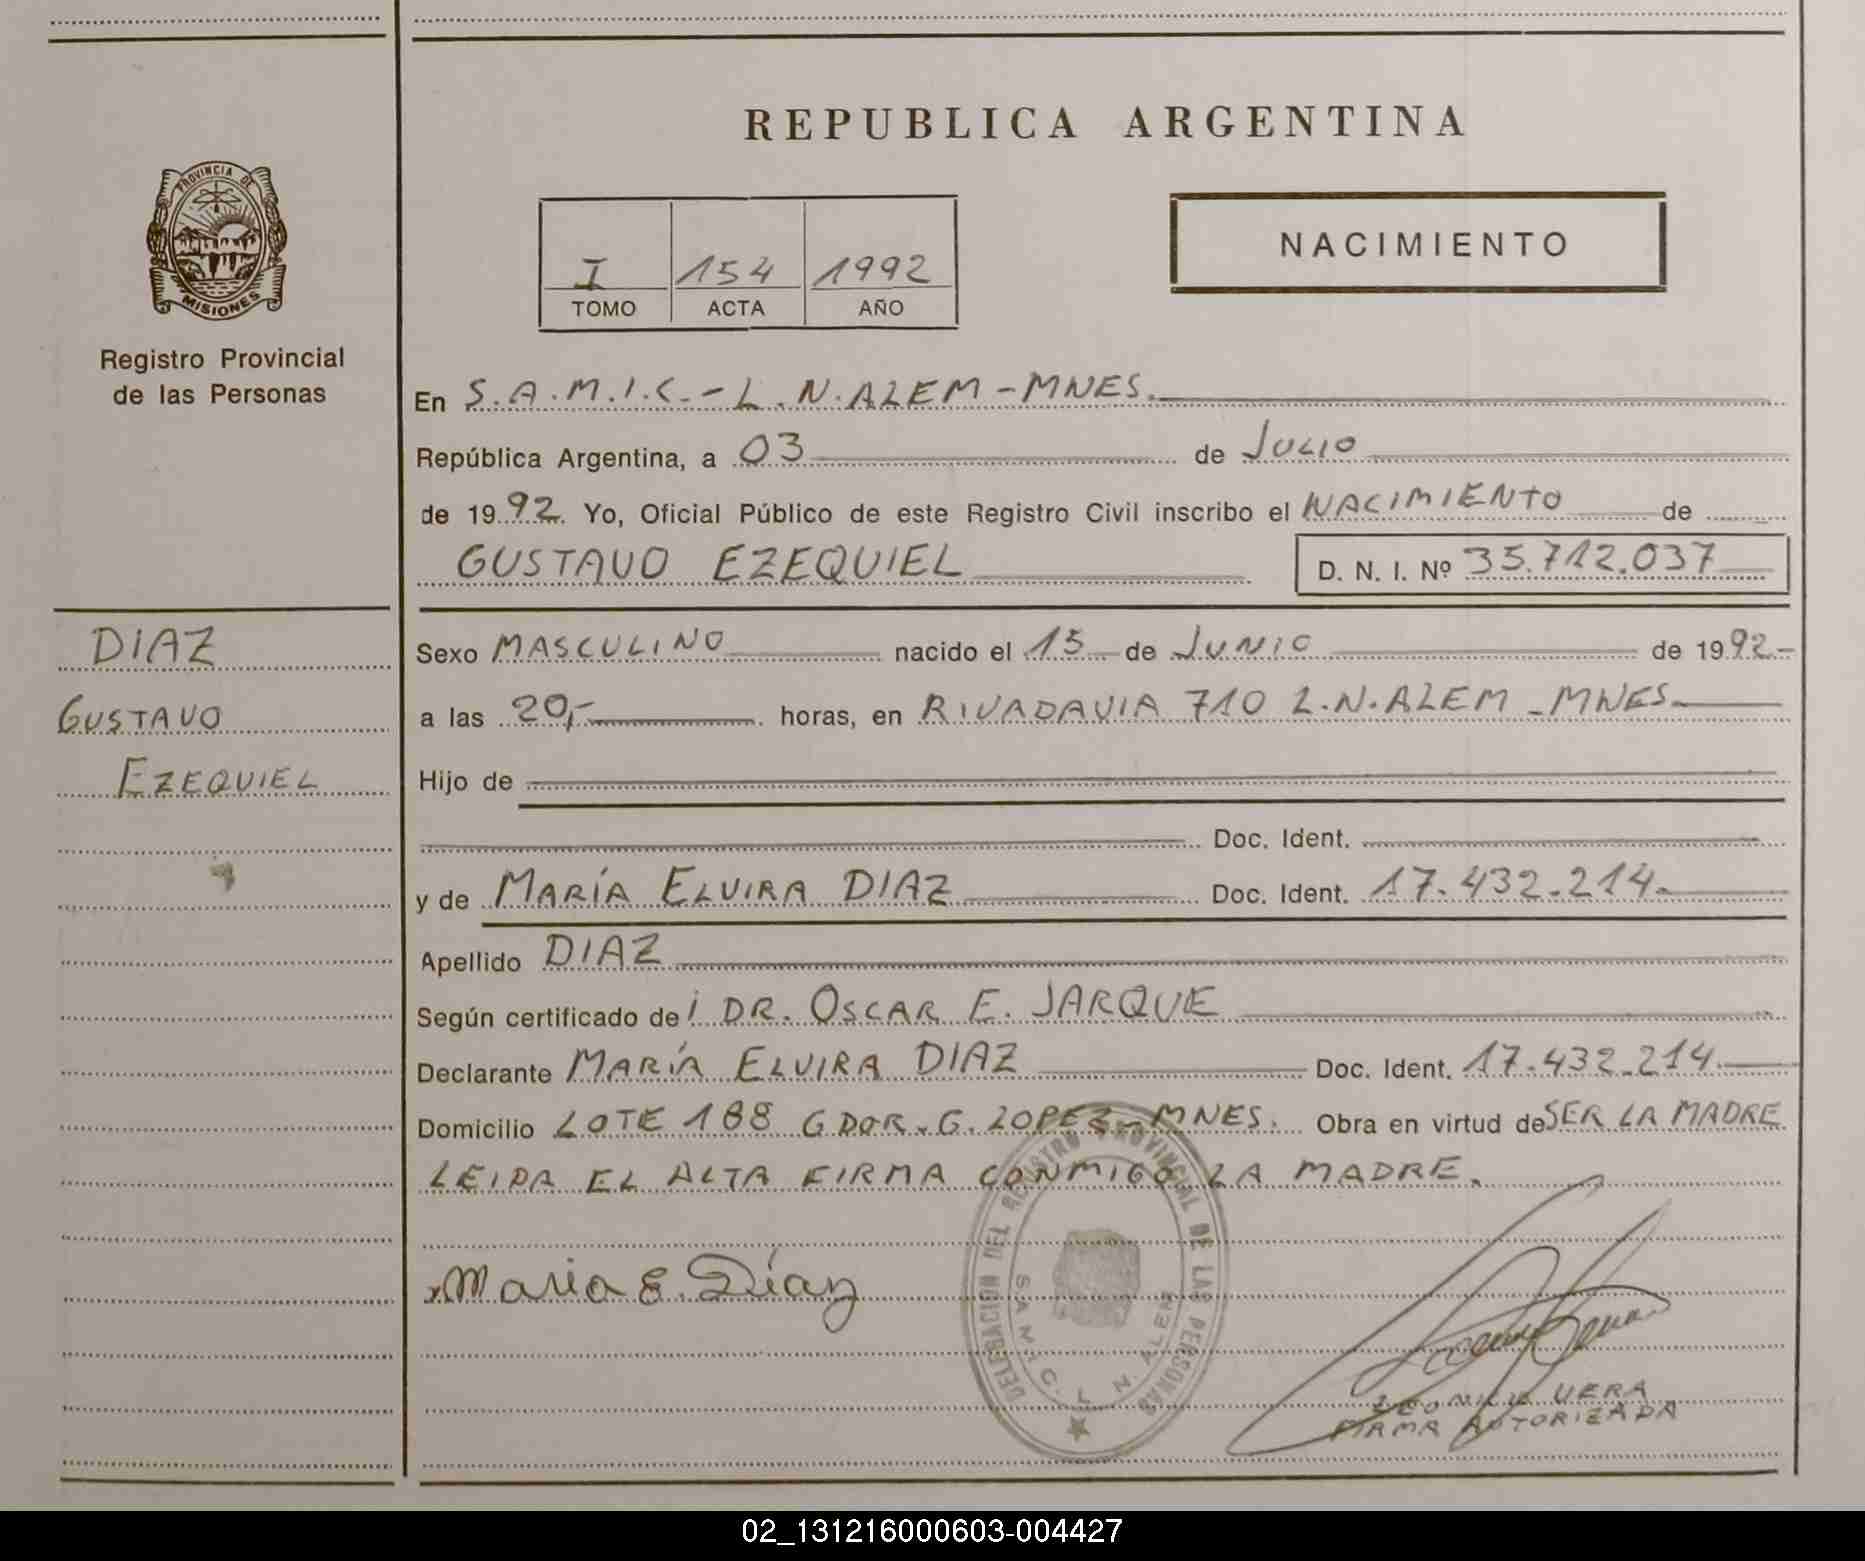 REPUBLICA ARGENTINA
PROVINCIA DE
MISIONES
Registro Provincial
de las Personas
I 154 1992
TOMO ACTA AÑO
NACIMIENTO
En S.A.M.I.C.-L.N.ALEM-MNES.
República Argentina, a 03 de JULIO
de 1992. Yo, Oficial Público de este Registro Civil inscribo el NACIMIENTO de
GUSTAVO EZEQUIEL D. N. I. Nº 35.712.037
DIAZ
GUSTAVO
EZEQUIEL
Sexo MASCULINO nacido el 15 de JUNIO de 1992.-
a las 20,- horas, en RIVADAVIA 710 L.N.ALEM-MNES.
Hijo de
Doc. Ident.
y de MARÍA ELVIRA DIAZ Doc. Ident. 17.432.214.
Apellido DIAZ
Según certificado del DR. OSCAR E. JARQUE
Declarante MARÍA ELVIRA DIAZ Doc. Ident. 17.432.214.
Domicilio LOTE 188 GDOR.G.LOPEZ-MNES. Obra en virtud de SER LA MADRE
LEIDA EL ALTA FIRMA CONMIGO LA MADRE.
Maria E. Díaz
DELEGACION DEL REGISTRO PROVINCIAL DE LAS PERSONAS
S.A.M.I.C. L. N. ALEM
VERA
FIRMA AUTORIZADA
02_131216000603-004427